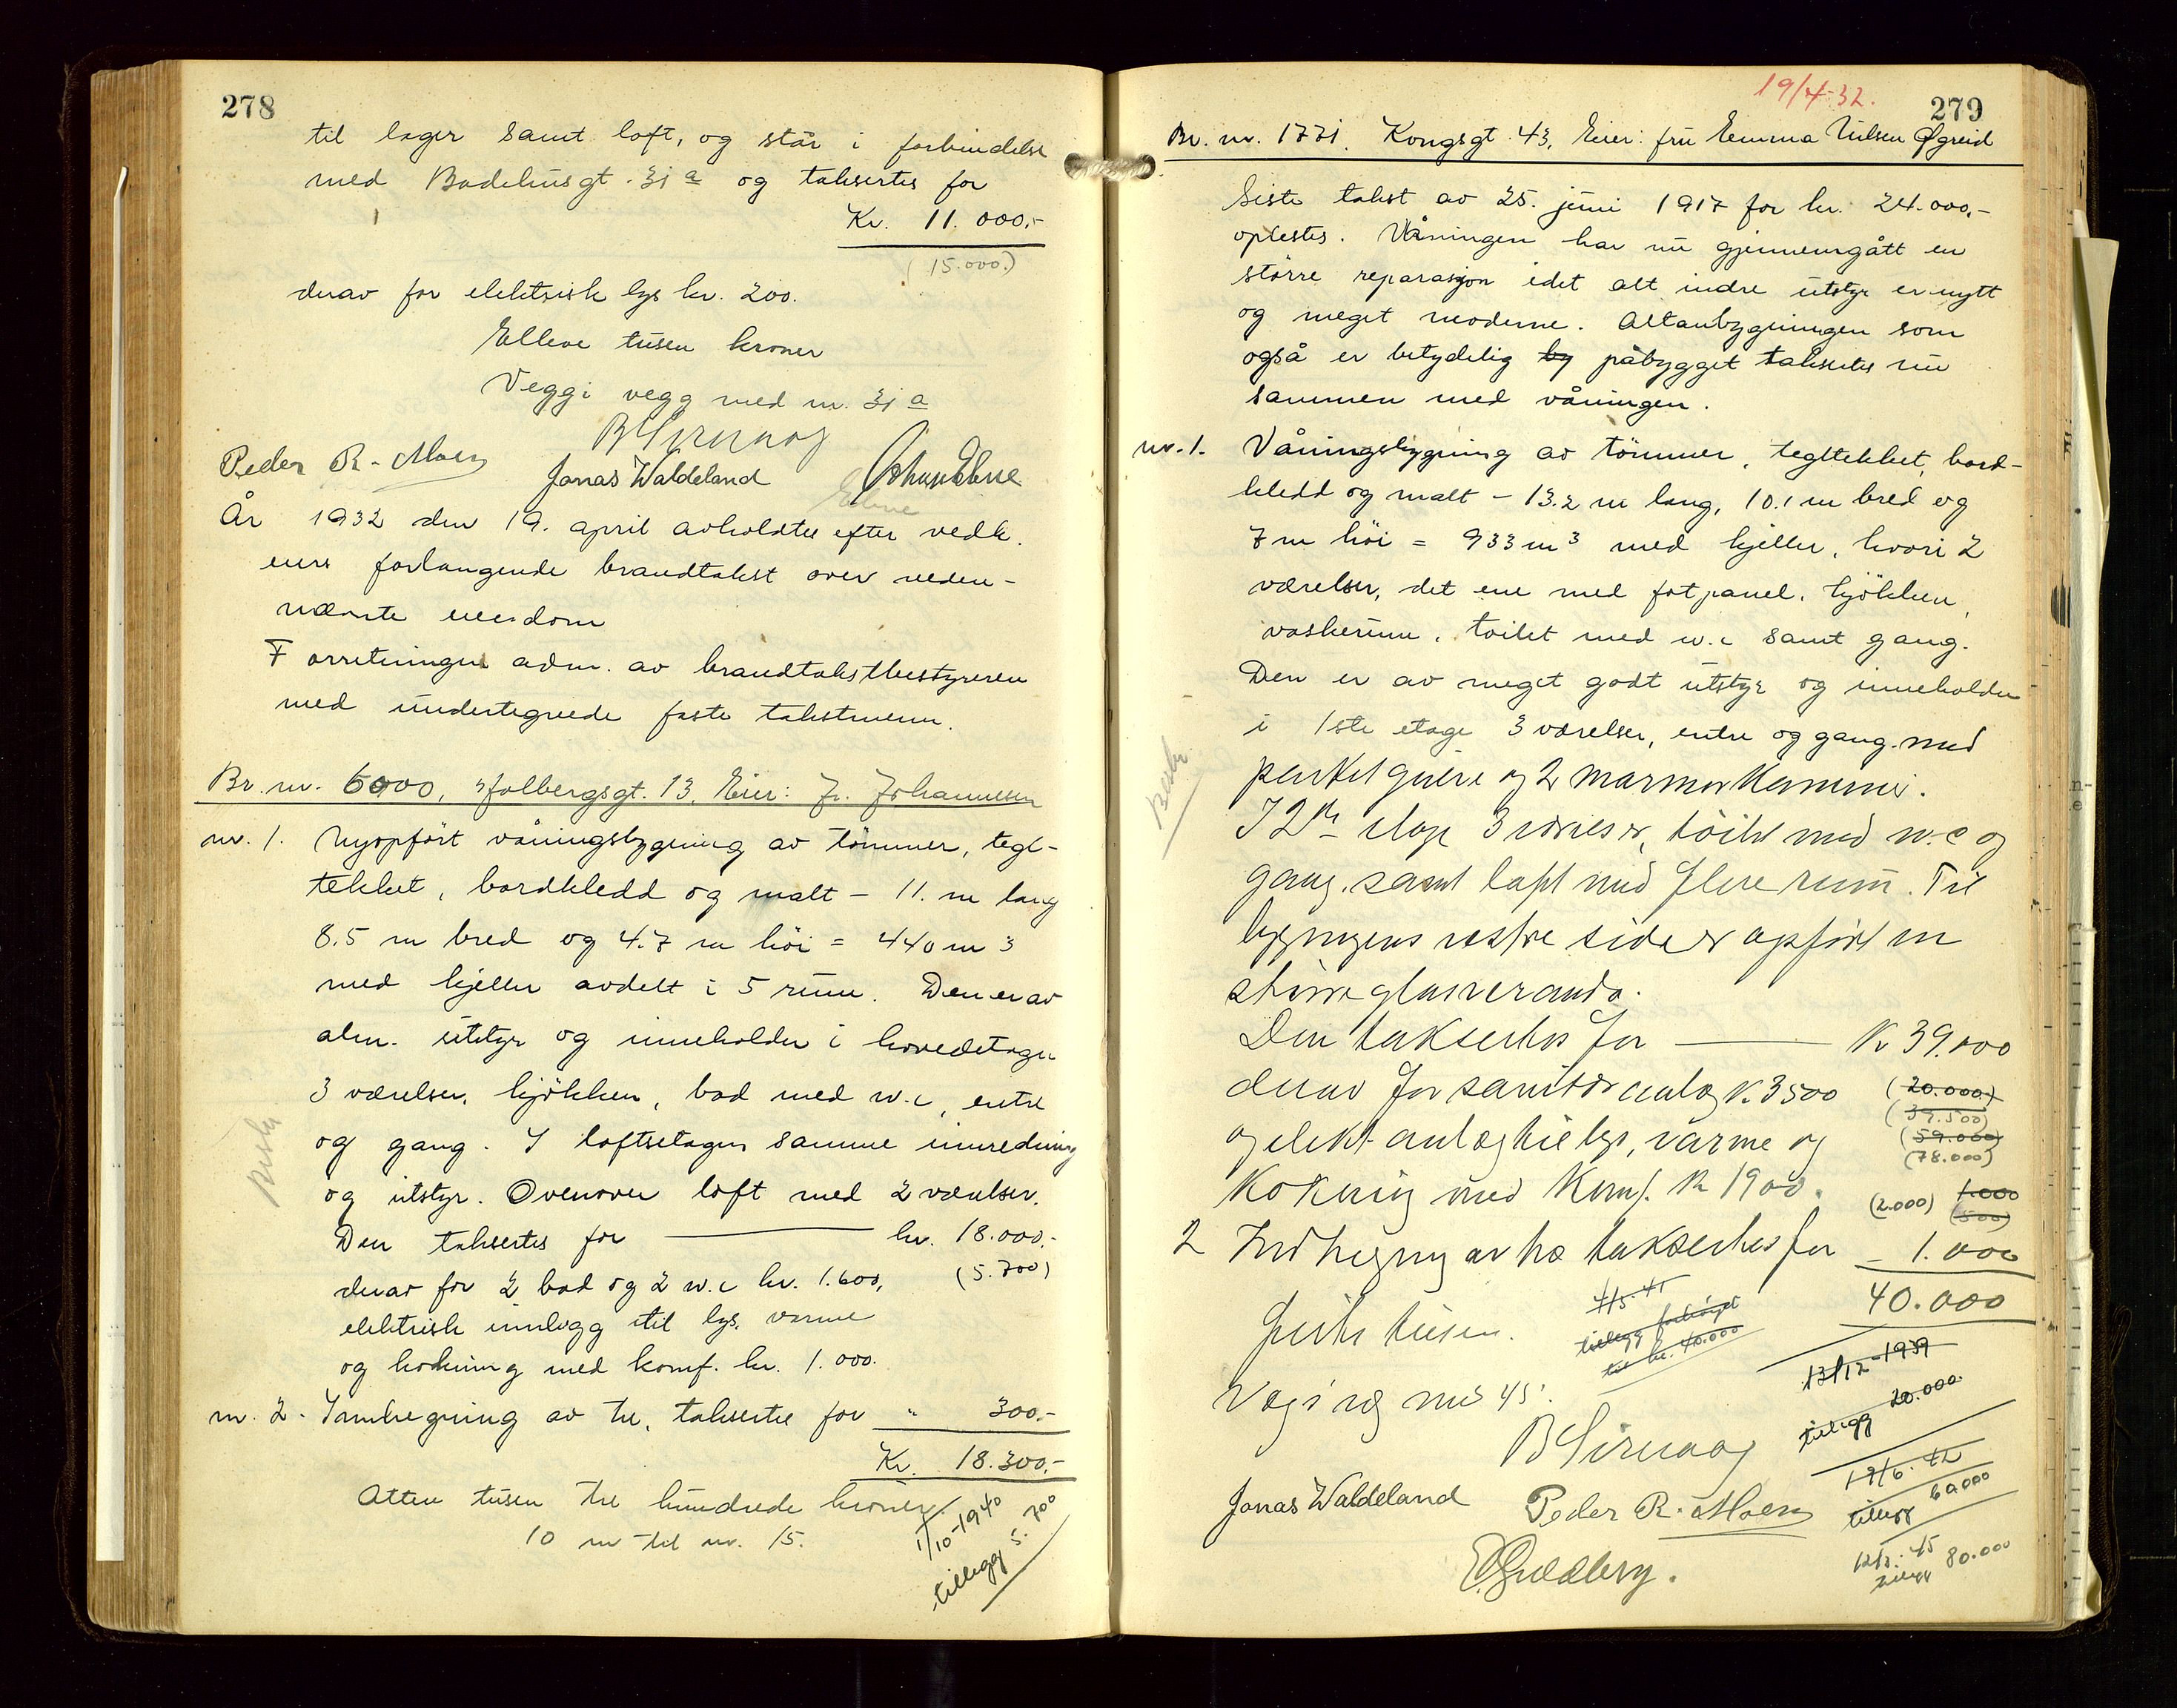 278
til lager samt loft, og står i forbindelse
med Badehusgt. 31 a og taksertes for
Kr. 11.000,-
(15.000.)
derav for elektrisk lys kr. 200.
Elleve tusen kroner
Vegg i vegg med nr. 31 a
Peder R. Moen Jonas Waldeland
År 1932 den 19. april avholdtes efter vedk.
eiers forlangende brandtakst over neden-
nævnte eiendom
Forretningen adm. av brandtakstbestyreren
med undertegnede faste takstmenn.
Br. nr. 6000, Holbergsgt. 13, Eier: Fr. Johannesen
nr. 1. Nyopført våningsbygning av tømmer, tegl-
tekket, bordkledd og malt - 11. m lang
8.5 m bred og 4.7 m høi = 440 m3
med kjeller avdelt i 5 rum. Den er av
alm. utstyr og inneholder i hovedetagen
3 værelser, kjøkken, bad med w.c, entre
og gang. I loftsetagen samme innredning
og utstyr. Ovenover loft med 2 værelser.
Den taksertes for kr. 18.000,-
derav for 2 bad og 2 w.c kr. 1.600, (5.700)
elektrisk innlegg til lys, varme
og kokning med komf. kr. 1.000.
nr. 2. Innhegning av tre, taksertes for " 300.-
Kr. 18.300,-
Atten tusen tre hundrede kroner
10 m til nr. 15.
1/10-1940
tillegg 5.700
19/4-32.
279
Br. nr. 1771. Kongsgt. 43, Eier: fru Emma Nilsen Øgreid
Siste takst av 25. juni 1917 for kr. 24.000,-
oplestes. Våningen har nu gjennemgått en
større reparasjon idet alt indre utstyr er nytt
og meget moderne. Altanbygningen som
også er betydelig by påbygget taksertes nu
sammen med våningen.
nr. 1. Våningsbygning av tømmer, tegltekket, bord-
kledd og malt - 13.2 m lang, 10.1 m bred og
7 m høi = 933 m3 med kjeller, hvori 2
værelser, det ene med fotpanel, kjøkken,
vaskerum, toilet med w.c samt gang.
Den er av meget godt utstyr og inneholder
i 1ste etage 3 værelser, entre og gang med
parketgulve og 2 marmorkaminer.
I 2den etage 3 værelser, toilet med w.c og
gang, samt loft med flere rum. Til
bygningens vestre side er opført en
større glasveranda.
Den taksertes for K 39.000
derav for sanitær anlæg K. 3500 (20.000.)
(39.500)
og elekt. anlæg til lys, varme og (59.000)
(78.000)
kokning med Komf. K 1900. (2.000) 1.000
(500)
2 Indhegning av træ taksertes for - 1.000
40.000
Førti tusen.
4/5-41
tillegg forhøiet
til kr. 40.000
13/12-1939
tillegg 20.000
Væg i væg med 45.
19/6-42
tillegg 60.000
Jonas Waldeland Peder R. Moen
12/3-45
tillegg 80.000